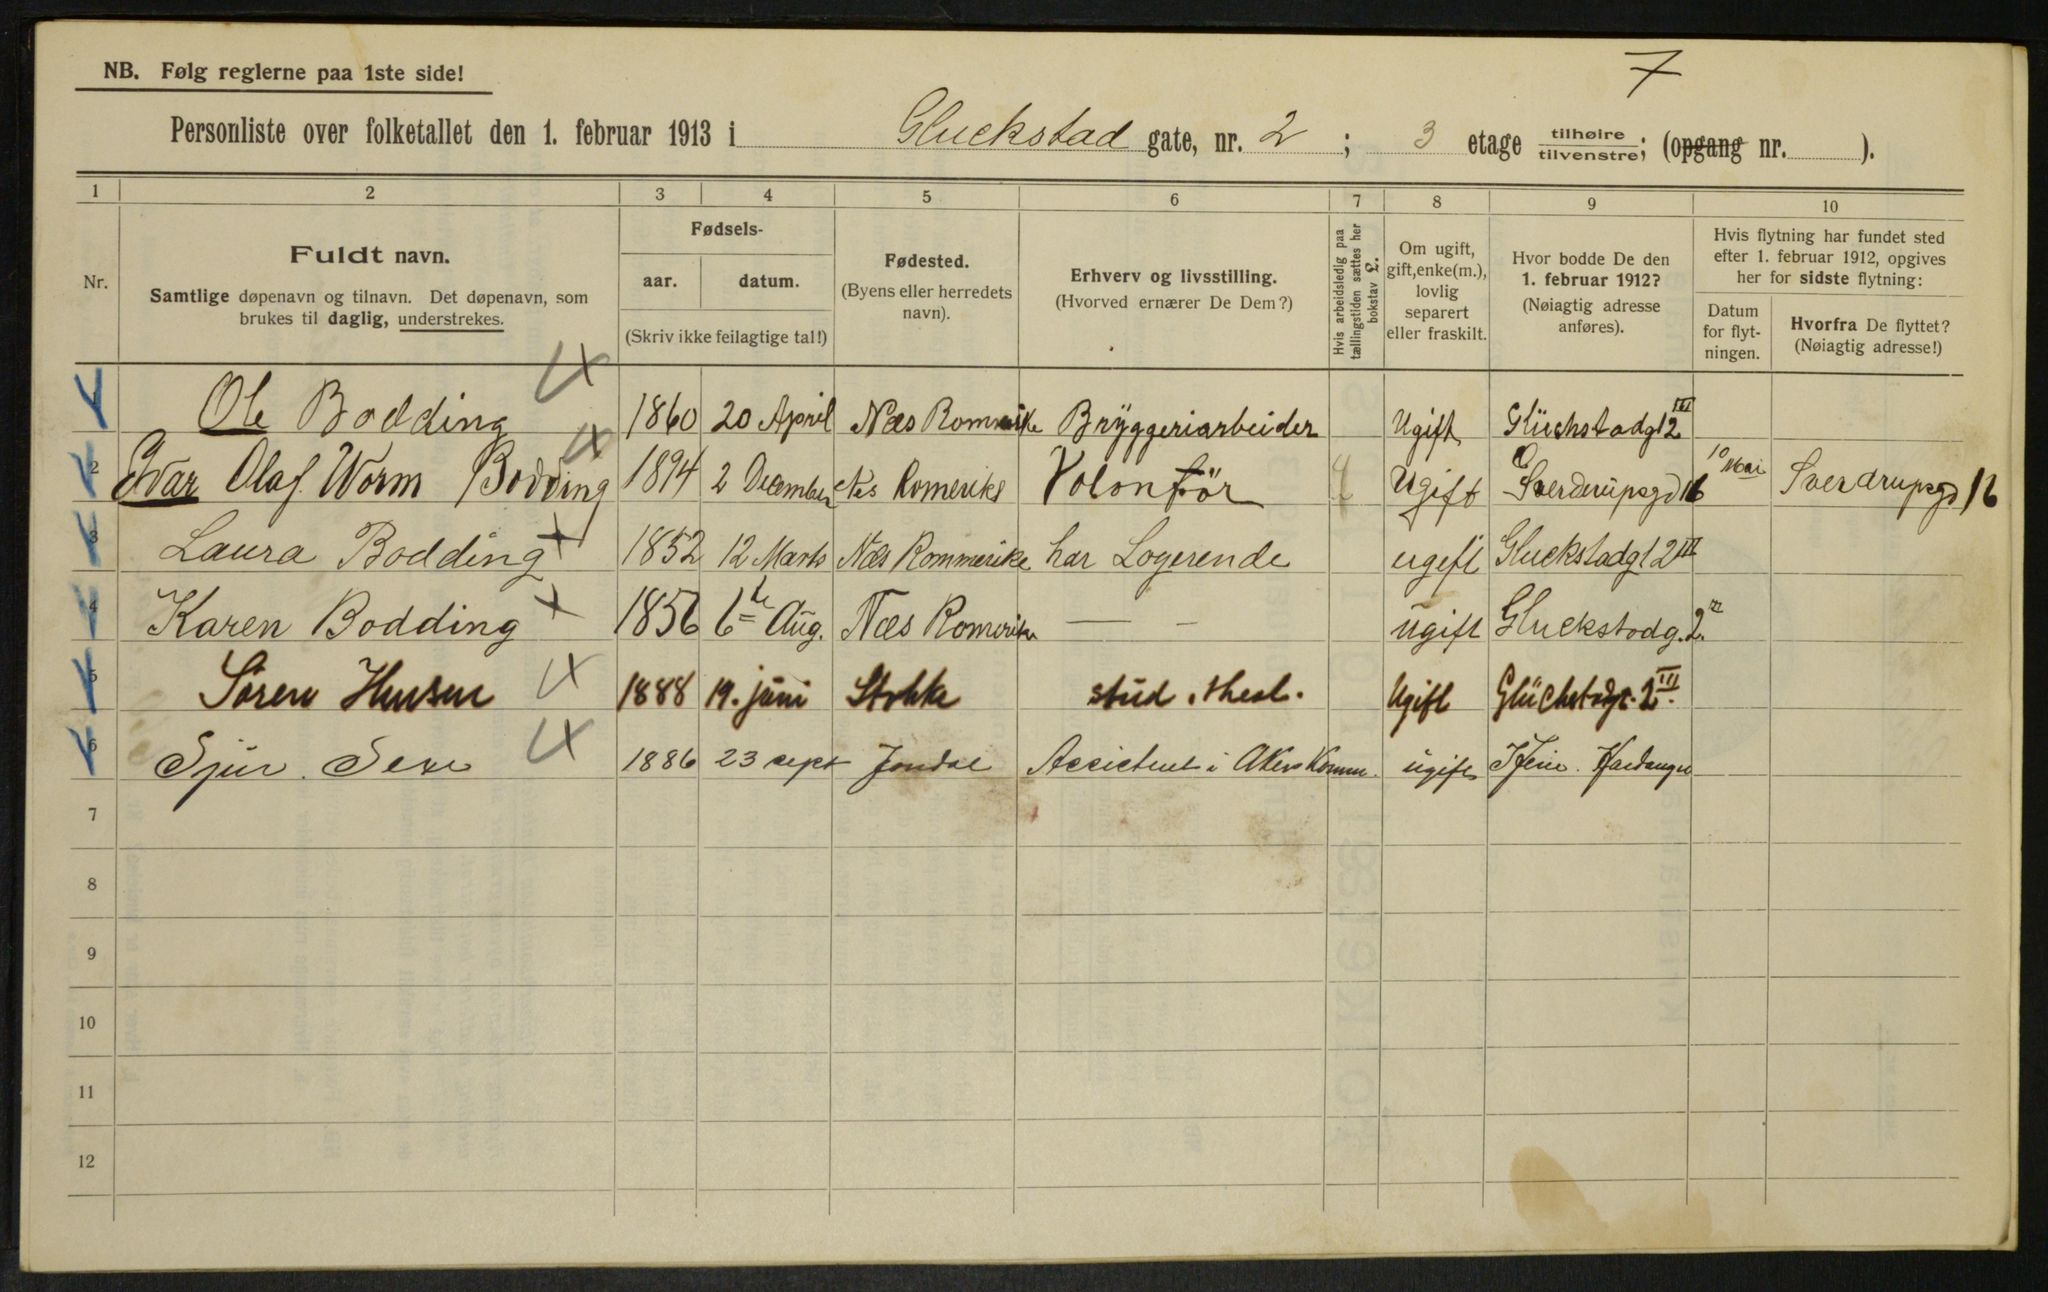 7
NB. Følg reglerne paa 1ste side!
Personliste over folketallet den 1. februar 1913 i Gluckstad gate, nr. 2 ; 3 etage tilhøire/tilvenstre; (opgang nr. ).
1 2 3 4 5 6 7 8 9 10
Nr.
Fuldt navn.
Samtlige døpenavn og tilnavn. Det døpenavn, som
brukes til daglig, understrekes.
Fødsels-
aar. datum.
(Skriv ikke feilagtige tal!)
Fødested.
(Byens eller herredets
navn).
Erhverv og livsstilling.
(Hvorved ernærer De Dem?)
Hvis arbeidsledig paa
tællingstiden sættes her
bokstav L.
Om ugift,
gift, enke(m.),
lovlig
separert
eller fraskilt.
Hvor bodde De den
1. februar 1912?
(Nøiagtig adresse
anføres).
Hvis flytning har fundet sted
efter 1. februar 1912, opgives
her for sidste flytning:
Datum
for flyt-
ningen.
Hvorfra De flyttet?
(Nøiagtig adresse!)
1 Ole Bodding 1860 20 April Næs Romerike Bryggeriarbeider Ugift Glückstadgt 2 III
2 Ivar Olaf Worm Bodding 1894 2 December Nes Romerike Volontör Ugift Sverdrupsgd 16 10 Mai Sverdrupsgd 16
3 Laura Bodding 1852 12 Marts Næs Rommerike har Logerende ugift Gluckstadgt 2 III
4 Karen Bodding 1856 6te Aug. Næs Romerike — - ugift Gluckstadg. 2 III
5 Sören Hansen 1888 19. juni Stokke stud. theol. Ugift Glückstadgt. 2 III.
6 Sjur Sexe 1886 23 sept Jondal Assistent i Akers Komm. ugift Hardanger
7
8
9
10
11
12